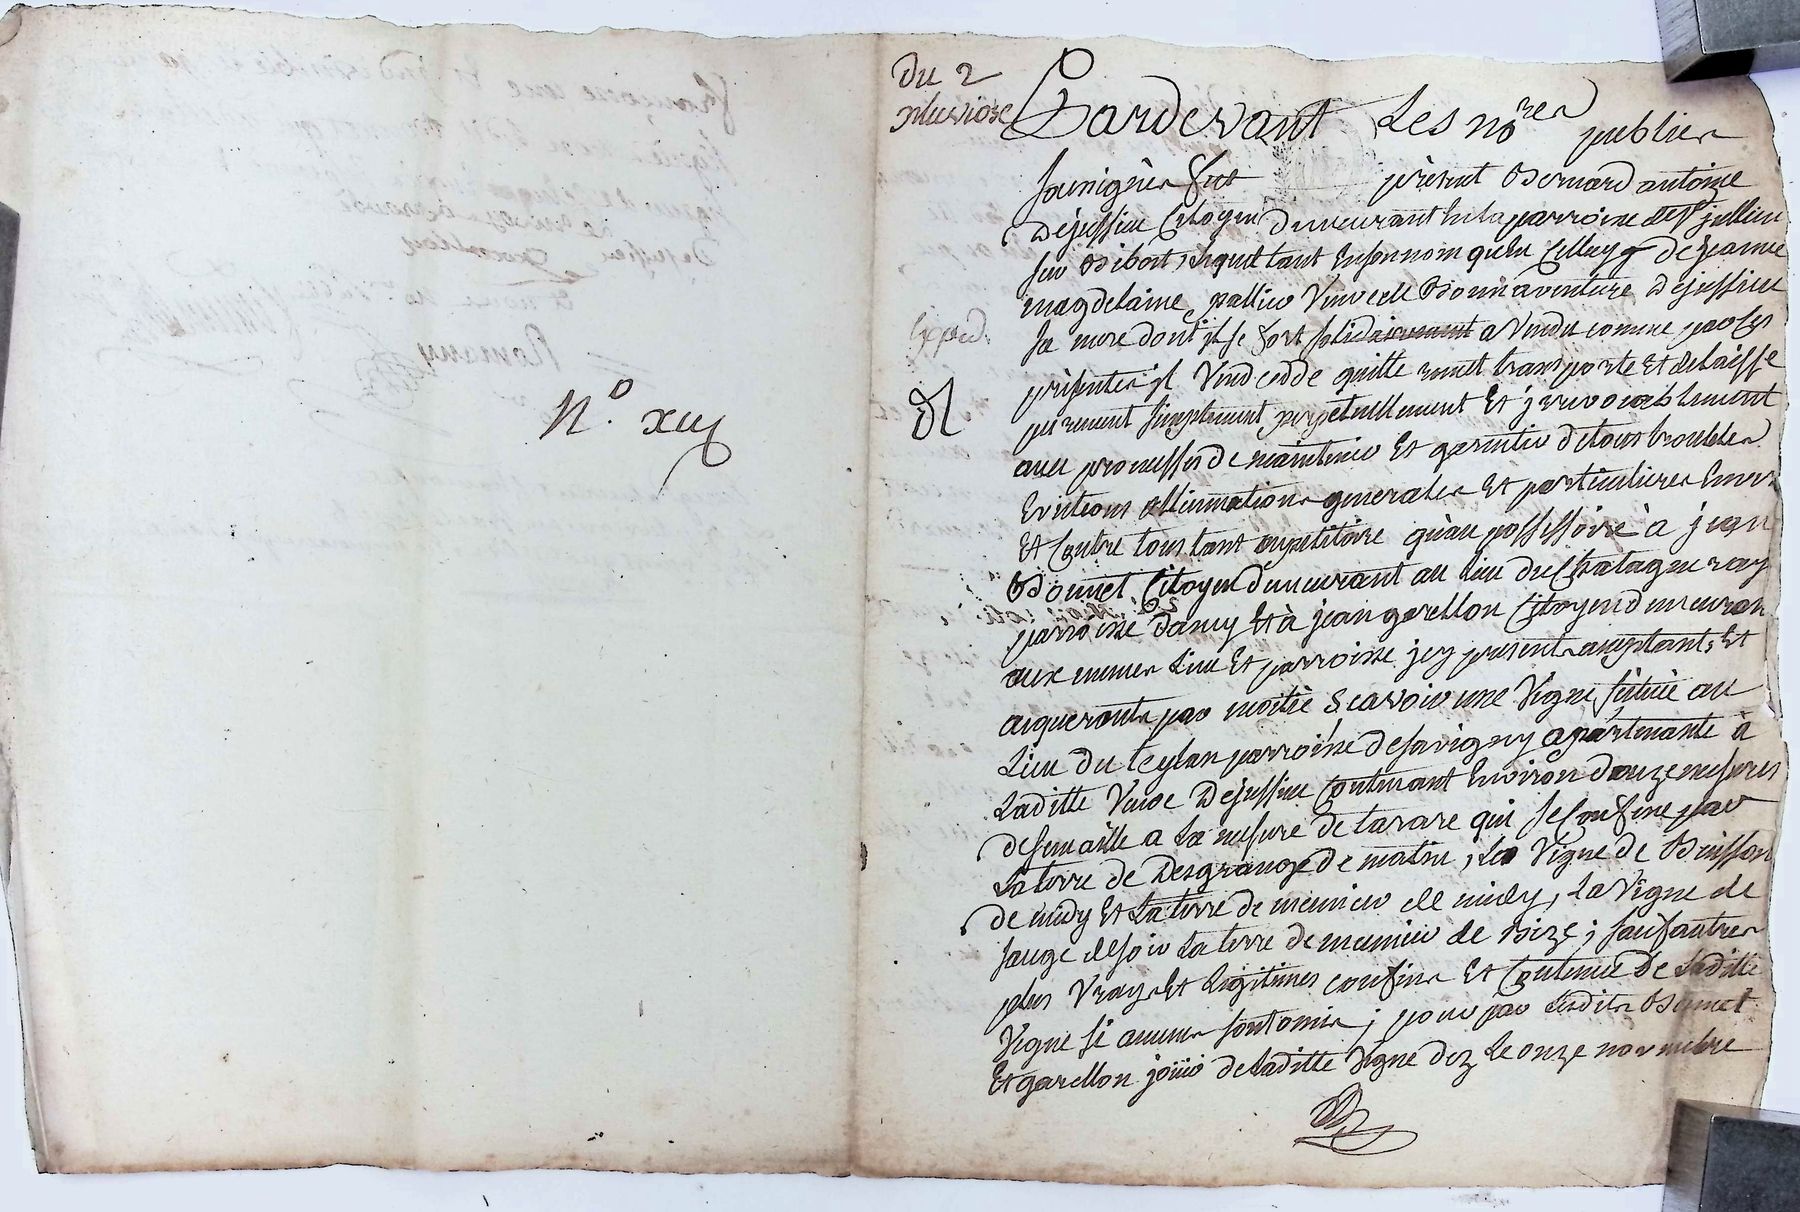 N.º xiij
Du 2
pluviose
Expéd.
Pardevant Les no.res publics
soussignés fut présent Bernard antoine
Dejussieu Citoyen demeurant en la parroisse de St jullien
sur Bibost, lequel tant en son nom qu'en celluy de jeanne
magdelaine pallieu Veuve de Bonnaventure Dejussieu
sa mere dont il se fort solidairement a Vendu comme par ces
présentes il Vend cedde quitte remet transporte et delaisse
purement simplement perpetuellement Et jrrevocablement
avec promesses de maintenir Et garentir de tous troubles
Evictions generales Et particulieres Envers
Et Contre tous tant au petitoire qu'au possessoire à jean
Bonnet Citoyen demeurant au Lieu du Chatagneray
parroisse dancy Et à jean garellon Citoyen demeurant
aux memes Lieu Et parroisse jcy presents acceptants Et
aiquerants par moitié Scavoir une Vigne située au
Lieu du Leylan parroisse de savigny apartenante à
Laditte Veuve Dejussieu Contenant Environ douze mesures
de semaille a La mesure de tarare qui se confine par
La terre de Desgrange de matin, La Vigne de Buisson
de midy Et La terre de meunier de midy, La Vigne de
sauge de soir La terre de meunier de Bize; sauf autres
plus Vrays Et Legitimes confins Et Contenue de Laditte
Vigne si aucuns sont omis; pour par Lesdits Bonnet
Et garellon jouir de Laditte Vigne dez Le onze novembre